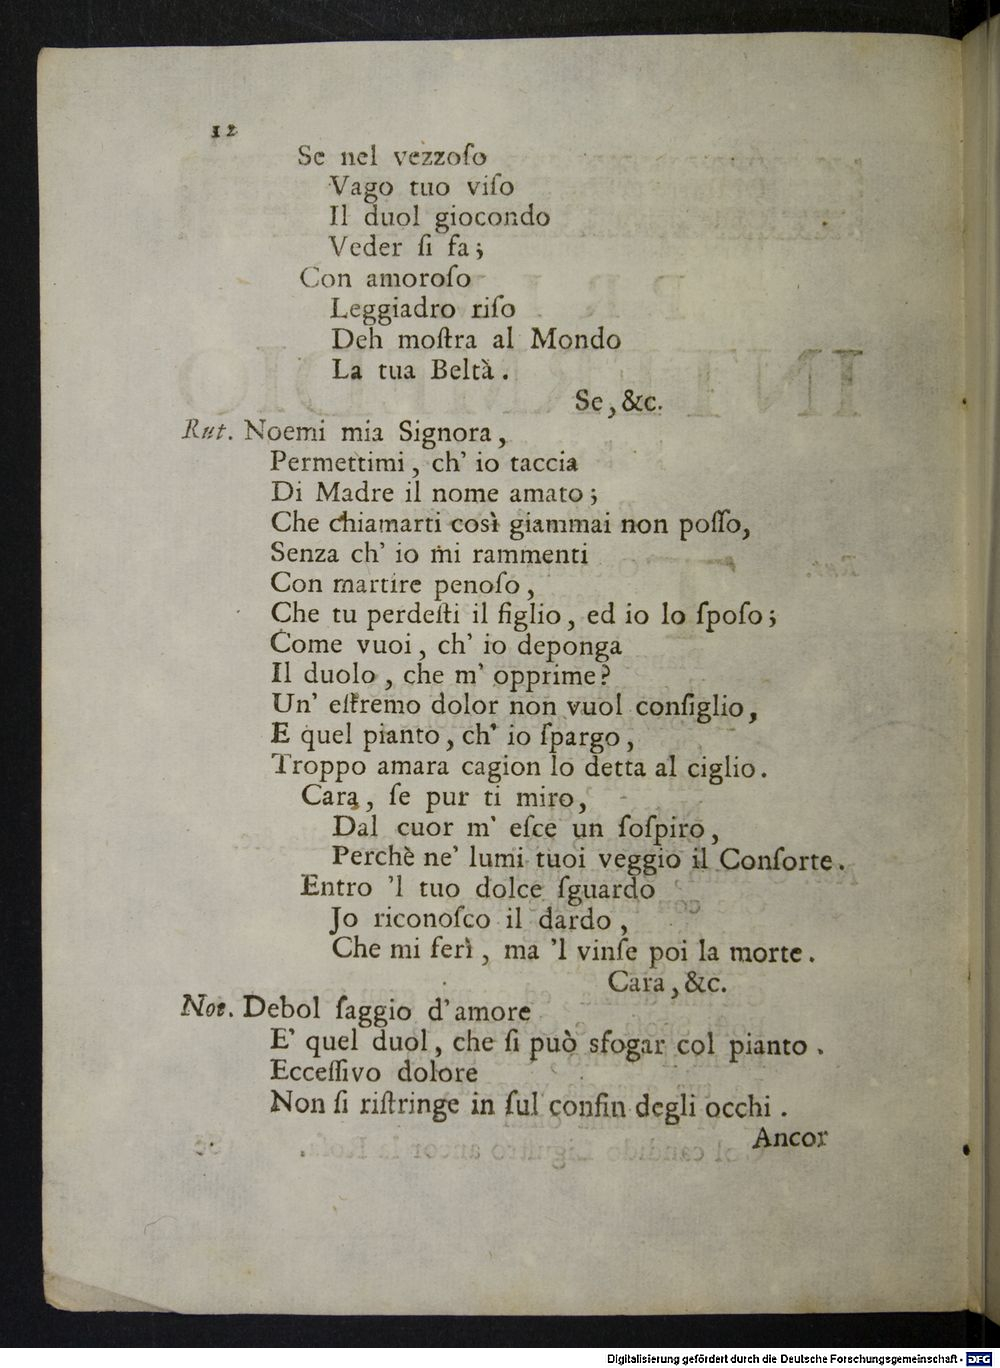 12
Se nel vezzoſo
Vago tuo viſo
Il duol giocondo
Veder ſi fa;
Con amoroſo
Leggiadro riſo
Deh moſtra al Mondo
La tua Beltà.
Se, &c.
Rut. Noemi mia Signora,
Permettimi, ch' io taccia
Di Madre il nome amato;
Che chiamarti così giammai non poſſo,
Senza ch' io mi rammenti
Con martire penoſo,
Che tu perdeſti il figlio, ed io lo ſpoſo;
Come vuoi, ch' io deponga
Il duolo, che m' opprime?
Un' eſtremo dolor non vuol conſiglio,
E quel pianto, ch' io ſpargo,
Troppo amara cagion lo detta al ciglio.
Cara, ſe pur ti miro,
Dal cuor m' eſce un ſoſpiro,
Perchè ne' lumi tuoi veggio il Conſorte.
Entro 'l tuo dolce ſguardo
Jo riconoſco il dardo,
Che mi ferì, ma 'l vinſe poi la morte.
Cara, &c.
Noe. Debol ſaggio d' amore
E' quel duol, che ſi può sfogar col pianto.
Ecceſſivo dolore
Non ſi riſtringe in ſul confin degli occhi.
Ancor
Digitalisierung gefördert durch die Deutsche Forschungsgemeinschaft - DFG